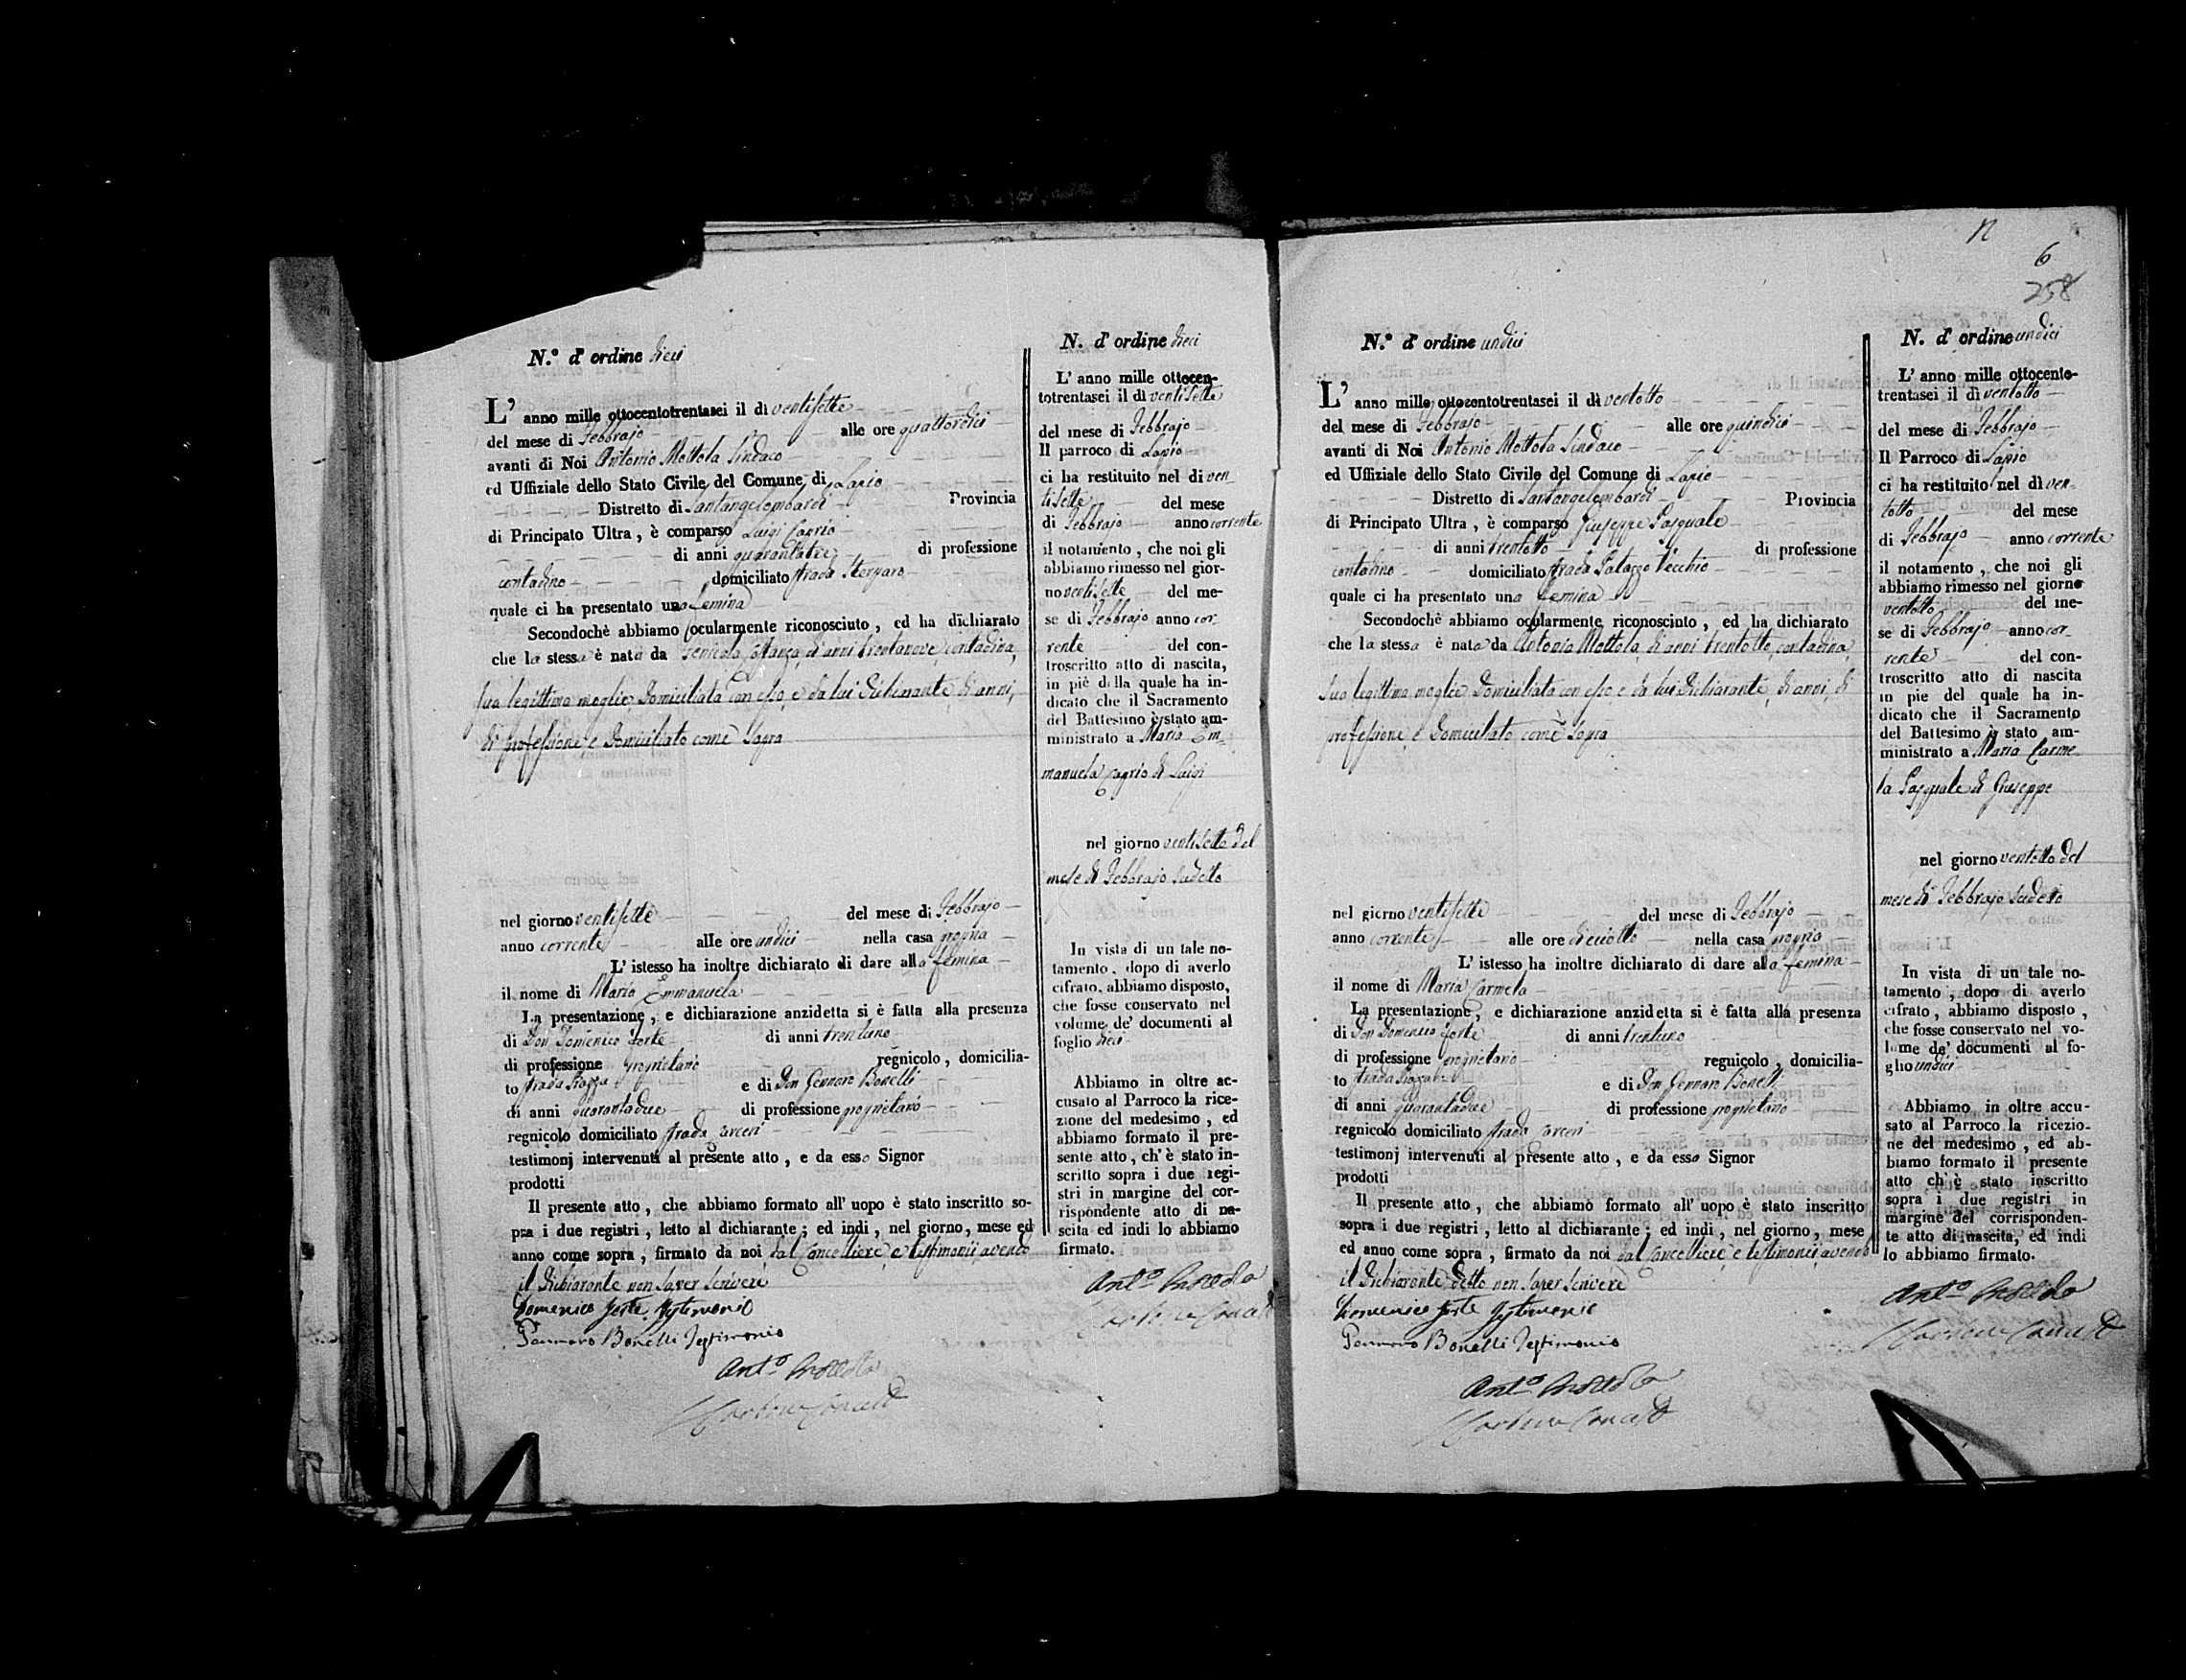 N.º d' ordine dieci
L' anno mille ottocentotrentasei il dì ventisette
del mese di Febbrajo alle ore quattordici
avanti di Noi Antonio Mottola Sindaco
ed Uffiziale dello Stato Civile del Comune di Lapio
Distretto di Santangelombardi Provincia
di Principato Ultra, è comparso Luigi Caprio
di anni quarantatre di professione
contadino domiciliato strada
quale ci ha presentato una femina
Secondochè abbiamo ocularmente riconosciuto, ed ha dichiarato
che la stessa è nata da Costanza, di anni trentanove, contadina,
sua legittima moglie, domiciliata con esso, e da lui Dichiarante, di anni,
di professione, e domiciliato come sopra
nel giorno ventisette del mese di Febbrajo
anno corrente alle ore undici nella casa propria
L' istesso ha inoltre dichiarato di dare alla femina
il nome di Maria Emmanuela
La presentazione, e dichiarazione anzidetta si è fatta alla presenza
di Don Domenico Forte di anni trentuno
di professione proprietario regnicolo, domicilia-
to strada Piazza e di Don Gennaro Bonelli
di anni quarantadue di professione proprietario
regnicolo domiciliato strada
testimonj intervenuti al presente atto, e da esso Signor
prodotti
Il presente atto, che abbiamo formato all' uopo è stato inscritto so-
pra i due registri, letto al dichiarante; ed indi, nel giorno, mese ed
anno come sopra, firmato da noi dal Cancelliere, e testimonii avendo
il Dichiarante non saper scrivere
Domenico Forte Testimonio
Gennaro Bonelli Testimonio
Ant.º Mottola
N. d' ordine dieci
L' anno mille ottocen-
totrentasei il dì ventisette
del mese di Febbrajo
Il parroco di Lapio
ci ha restituito nel dì ven-
tisette del mese
di Febbrajo anno corrente
il notamento, che noi gli
abbiamo rimesso nel gior-
no ventisette del me-
se di Febbrajo anno cor-
rente del con-
troscritto atto di nascita,
in piè della quale ha in-
dicato che il Sacramento
del Battesimo è stato am-
ministrato a Maria Em-
manuela Caprio di Luigi
nel giorno ventisette del
mese di Febbrajo sudetto
In vista di un tale no-
tamento, dopo di averlo
cifrato, abbiamo disposto,
che fosse conservato nel
volume de' documenti al
foglio dieci
Abbiamo in oltre ac-
cusato al Parroco la rice-
zione del medesimo, ed
abbiamo formato il pre-
sente atto, ch' è stato in-
scritto sopra i due regi-
stri in margine del cor-
rispondente atto di na-
scita ed indi lo abbiamo
firmato.
Ant.º Mottola
6
258
N.º d' ordine undici
L' anno mille ottocentotrentasei il dì ventotto
del mese di Febbrajo alle ore quindici
avanti di Noi Antonio Mottola Sindaco
ed Uffiziale dello Stato Civile del Comune di Lapio
Distretto di Santangelombardi Provincia
di Principato Ultra, è comparso Giuseppe Pasquale
di anni trentotto di professione
contadino domiciliato strada Palazzo Vecchio
quale ci ha presentato una femina
Secondochè abbiamo ocularmente riconosciuto, ed ha dichiarato
che la stessa è nata da Antonia Mottola, di anni trentotto, contadina,
sua legittima moglie, domiciliata con esso, e da lui Dichiarante, di anni, di
professione, e domiciliato come sopra
nel giorno ventisette del mese di Febbrajo
anno corrente alle ore dieciotto nella casa propria
L' istesso ha inoltre dichiarato di dare alla femina
il nome di Maria Carmela
La presentazione, e dichiarazione anzidetta si è fatta alla presenza
di Don Domenico Forte di anni trentuno
di professione proprietario regnicolo, domicilia-
to strada Piazza e di Don Gennaro Bonelli
di anni quarantadue di professione proprietario
regnicolo domiciliato strada
testimonj intervenuti al presente atto, e da esso Signor
prodotti
Il presente atto, che abbiamo formato all' uopo è stato inscritto
sopra i due registri, letto al dichiarante; ed indi, nel giorno, mese
ed anno come sopra, firmato da noi dal Cancelliere, e testimonii avendo
il Dichiarante detto non saper scrivere
Domenico Forte Testimonio
Gennaro Bonelli Testimonio
Ant.º Mottola
N. d' ordine undici
L' anno mille ottocento-
trentasei il dì ventotto
del mese di Febbrajo
Il Parroco di Lapio
ci ha restituito nel dì ven-
totto del mese
di Febbrajo anno corrente
il notamento, che noi gli
abbiamo rimesso nel giorno
ventotto del me-
se di Febbrajo anno cor-
rente del con-
troscritto atto di nascita
in pie del quale ha in-
dicato che il Sacramento
del Battesimo è stato am-
ministrato a Maria Carme-
la Pasquale di Giuseppe
nel giorno ventotto del
mese di Febbrajo sudetto
In vista di un tale no-
tamento, dopo di averlo
cifrato, abbiamo disposto,
che fosse conservato nel vo-
lume de' documenti al fo-
glio undici
Abbiamo in oltre accu-
sato al Parroco la ricezio-
ne del medesimo, ed ab-
biamo formato il presente
atto ch' è stato inscritto
sopra i due registri in
margine del corrisponden-
te atto di nascita, ed indi
lo abbiamo firmato.
Ant.º Mottola